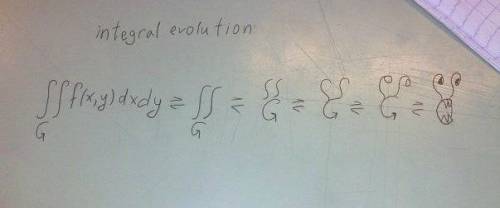 integral evolution
∬ f(x,y) dxdy ⇄ ∬ ⇄ ∬ ⇄ ∬ ⇄ ∬ ⇄
G G G G G